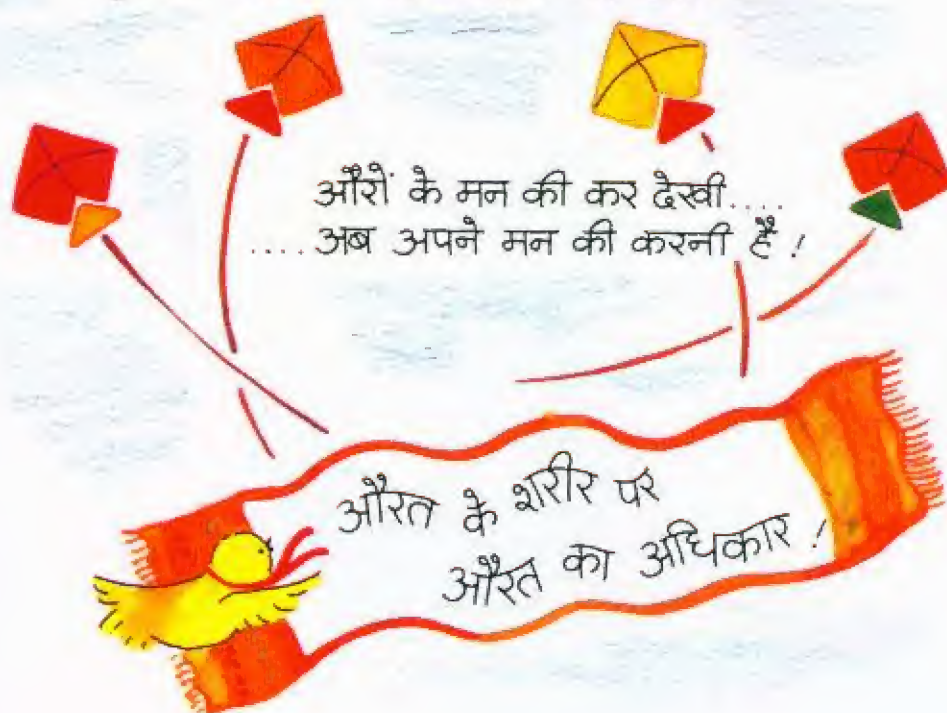 औरों के मन की कर देखी....
....अब अपने मन की करनी है!
औरत के शरीर पर
औरत का अधिकार!